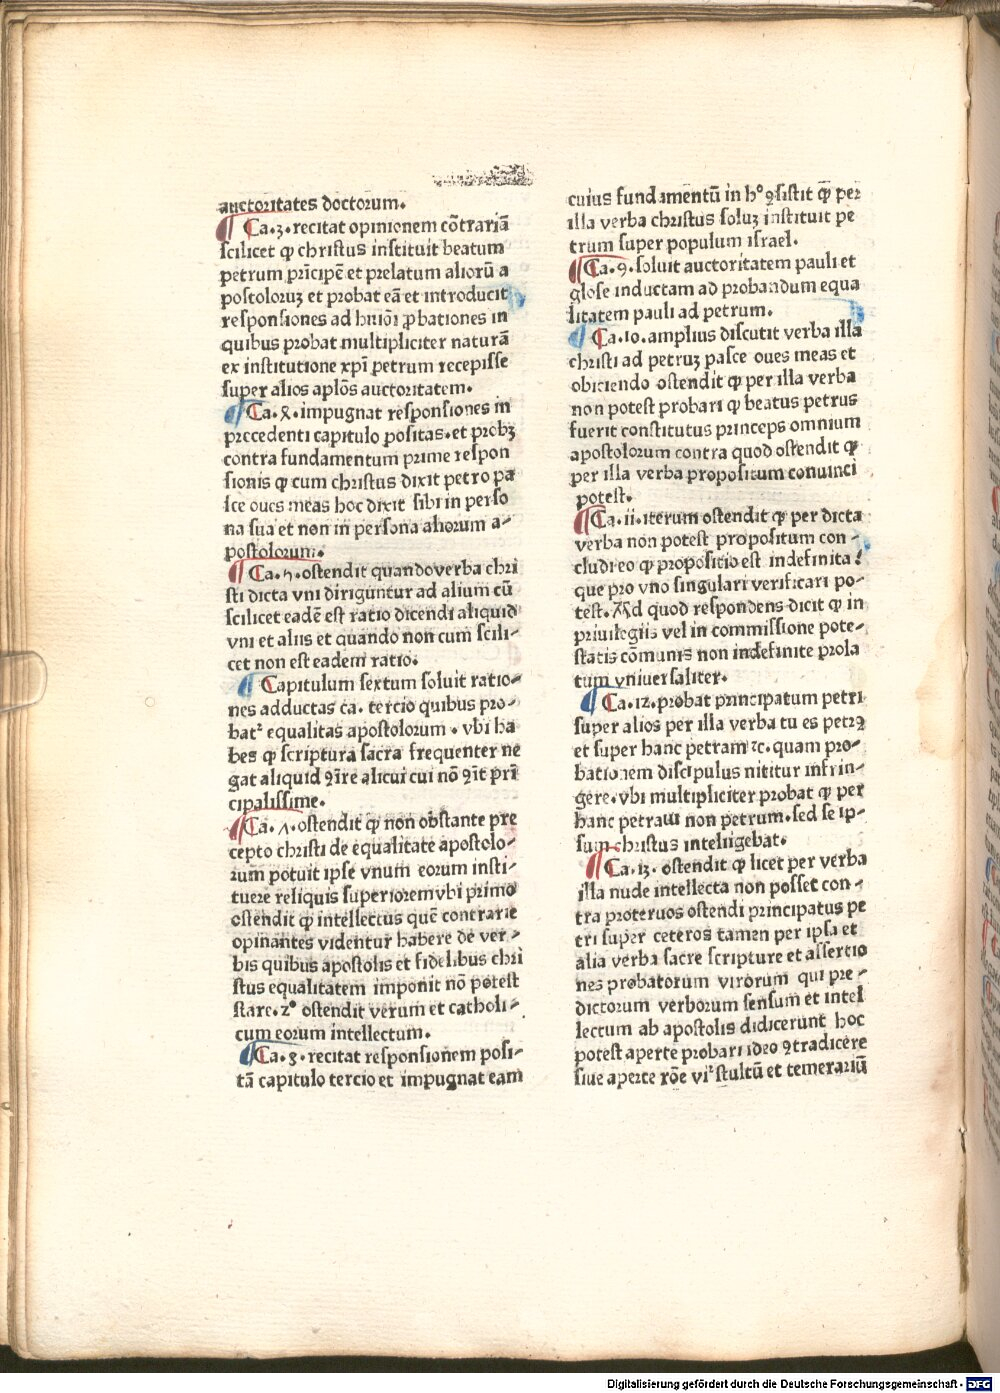 auctoritates doctorum.
¶ Ca.3.recitat opinionem cōtrariā
scilicet ꝙ christus instituit beatum
petrum prīcipē et prelatum aliorū a
postoloruꝫ et probat eā et introducit
responsiones ad huiōi ꝓbationes in
quibus probat multipliciter naturā
ex institutione xp̄i petrum recepisse
super alios aplōs auctoritatem.
¶ Ca.ꝝ.impugnat responsiones in
precedenti capitulo positas.et probꝫ
contra fundamentum prime respon
sionis ꝙ cum christus dixit petro pa
sce oues meas hoc dixit sibi in perso
na sua et non in persona aliorum a-
postolorum.
¶ Ca.ϟ.ostendit quando verba chri
sti dicta vni diriguntur ad alium cū
scilicet eadē est ratio dicendi aliquid
vni et aliis et quando non cum scili-
cet non est eadem ratio.
¶ Capitulum sextum soluit ratio-
nes adductas ca. tercio quibus pro-
batᷣ equalitas apostolorum. vbi ha
bes ꝙ scriptura sacra frequenter ne
gat aliquid ꝯire alicui cui nō ꝯit prī
cipalissime.
¶ Ca.ʌ.ostendit ꝙ non obstante pre
cepto christi de equalitate apostolo-
rum potuit ipse vnum eorum insti-
tuere reliquis superiorem vbi primo
ostendit ꝙ intellectus quē contrarie
opinantes videntur habere de ver-
bis quibus apostolis et fidelibus chri
stus equalitatem imponit nō potest
stare.2° ostendit verum et catholi-
cum eorum intellectum.
¶ Ca.8.recitat responsionem posi-
tā capitulo tercio et impugnat eam
cuius fundamentū in h° ꝯsistit ꝙ per
illa verba christus soluꝫ instituit pe
trum super populum israel.
¶ Ca.9.soluit auctoritatem pauli et
glose inductam ad probandum equa
litatem pauli ad petrum.
¶ Ca.10.amplius discutit verba illa
christi ad petruꝫ pasce oues meas et
obiciendo ostendit ꝙ per illa verba
non potest probari ꝙ beatus petrus
fuerit constitutus princeps omnium
apostolorum contra quod ostendit ꝙ
per illa verba propositum conuinci
potest.
¶ Ca.ii.iterum ostendit ꝙ per dicta
verba non potest propositum con-
cludi eo ꝙ propositio est indefinita:
que pro vno singulari verificari po-
test. Ad quod respondens dicit ꝙ in
priuilegiis vel in commissione pote-
statis cōmunis non indefinite prola
tum vniuersaliter.
¶ Ca.12.probat principatum petri
super alios per illa verba tu es petrꝰ
et super hanc petram ⁊c. quam pro-
bationem discipulus nititur infrin-
gere.vbi multipliciter probat ꝙ per
hanc petram non petrum.sed se ip-
sum christus intelligebat.
¶ Ca.13. ostendit ꝙ licet per verba
illa nude intellecta non posset con-
tra proteruos ostendi principatus pe
tri super ceteros tamen per ipsa et
alia verba sacre scripture et assertio
nes probatorum virorum qui pre-
dictorum verborum sensum et intel
lectum ab apostolis didicerunt hoc
potest aperte probari ideo ꝯtradicere
siue aperte rōe viᷣ stultū et temerariū
Digitalisierung gefördert durch die Deutsche Forschungsgemeinschaft - DFG